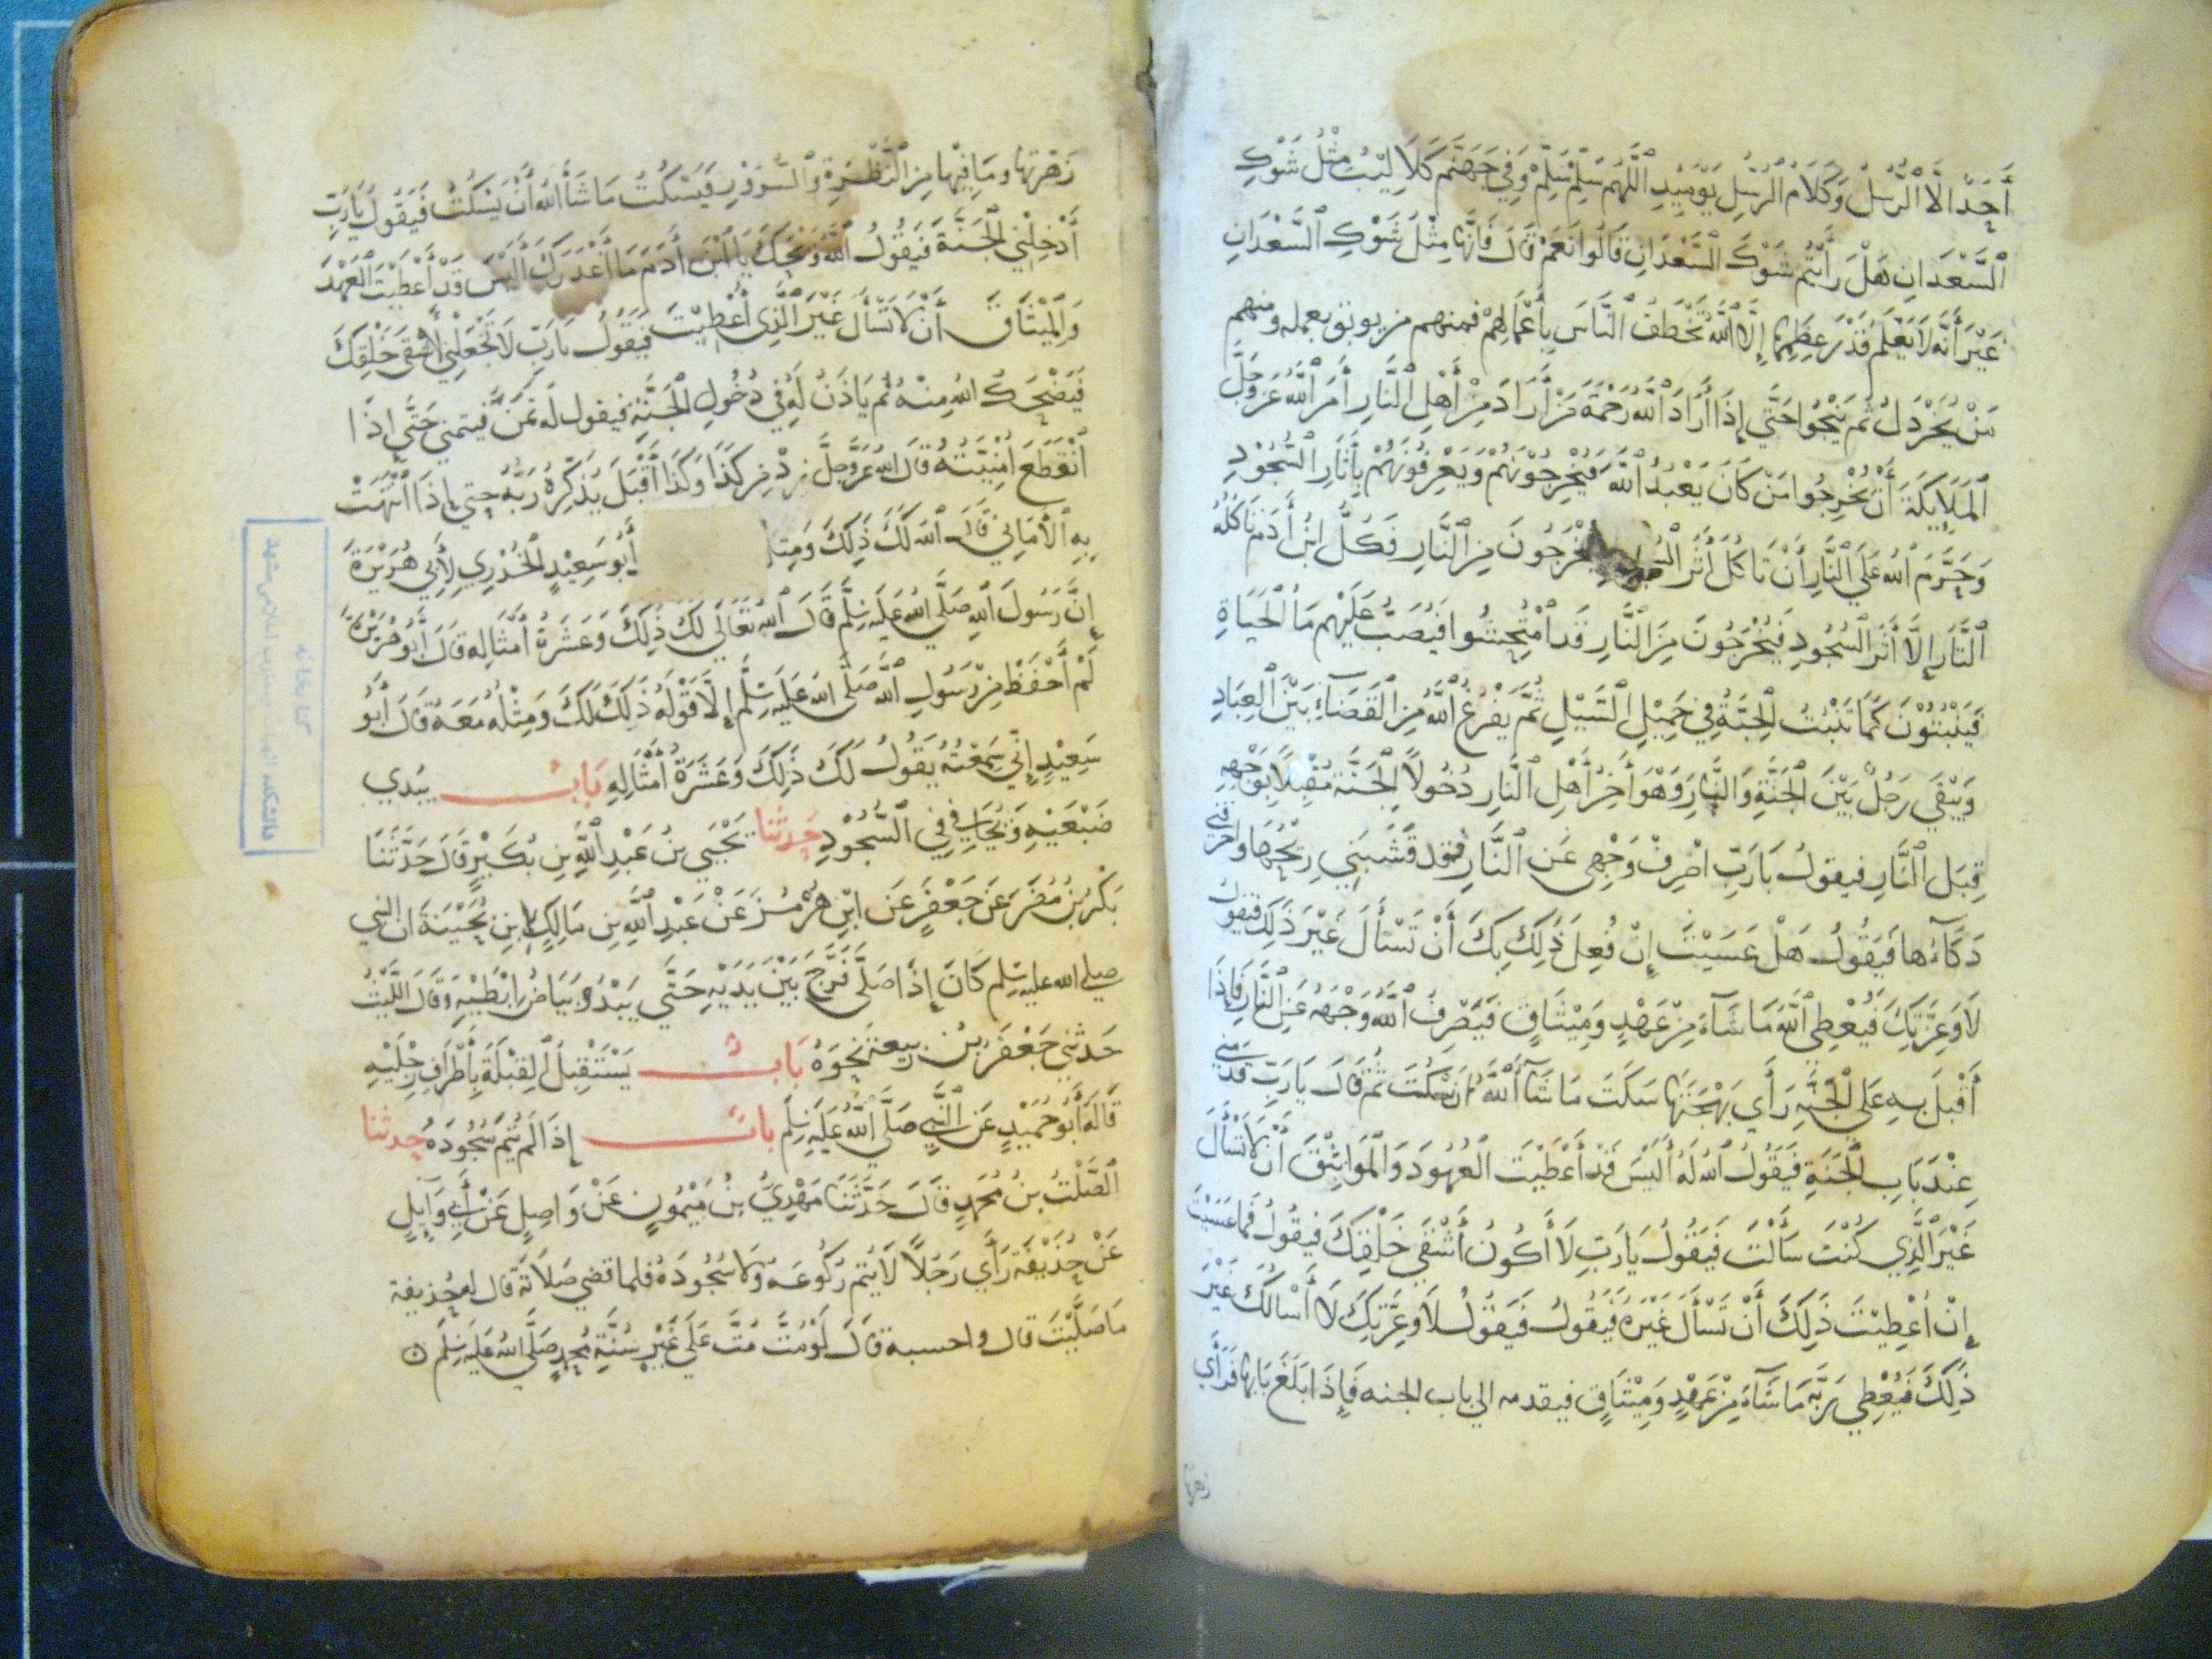 أَحَدٌ الَّا الرُّسُلُ وَكَلَامُ الرُّسُلِ يَوْمَئِذٍ اللَّهُمَّ سَلِّمْ سَلِّمْ وَفِي جَهَنَّمَ كَلَالِيْبُ مِثْلُ شَوْكِ
السَّعْدَانِ هَلْ رَأَيْتُمْ شَوْكَ السَّعْدَانِ قَالُوا نَعَمْ قَالَ فَإِنَّهَا مِثْلُ شَوْكِ السَّعْدَانِ
غَيْرَ أَنَّهُ لَا يَعْلَمُ قَدْرَ عِظَمِهَا إِلَّا اللَّهُ تَخْطَفُ النَّاسَ بِأَعْمَالِهِمْ فمنهم من يوبق بعمله ومنهم
مَنْ يُخَرْدَلُ ثُمَّ يَنْجُوا حَتَّى إِذَا أَرَادَ اللَّهُ رَحْمَةَ مَنْ أَرَادَ مِنْ أَهْلِ النَّارِ أَمَرَ اللَّهُ عَزَّ وَجَلَّ
الْمَلَايِكَةَ أَنْ يُخْرِجُوا مَنْ كَانَ يَعْبُدُ اللَّهَ فَيُخْرِجُوْنَهُمْ وَيَعْرِفُوْنَهُمْ بِأَثَارِ السُّجُوْدِ
وَحَرَّمَ اللَّهُ عَلَى النَّارِ أَنْ تَاكُلَ أَثَرَ يَخْرُجُونَ مِنَ النَّارِ فَكُلُّ ابْنِ أَدَمَ تَاكُلُهُ
النَّارُ إِلَّا أَثَرَ السُّجُودِ فَيَخْرُجُونَ مِنَ النَّارِ قَدِ امْتُحِشُوا فَيُصَبُّ عَلَيْهِمْ مَاُ الْحَيَاةِ
فَيَنْبُتُوْنَ كَمَا تَنْبُتُ الْحِبَّةُ فِي حَمِيْلِ السَّيْلِ ثُمَّ يَفْرُغُ اللَّهُ مِنَ الْقَضَاءِ بَيْنَ الْعِبَادِ
وَيَبْقَى رَجُلٌ بَيْنَ الْجَنَّةِ وَالنَّارِ وَهْوَ أَخِرُ أَهْلِ النَّارِ دُخُولًا الْجَنَّةَ مُقْبِلًا بِوَجْهِهِ
قِبَلَ النَّارِ فيقولُ يَارَبِّ اصْرِفْ وَجْهِى عَنِ النَّارِ فقد قَشَبَنِي رِيْحُهَا واحرقني
ذَكَاؤُها فَيَقُولُ هَلْ عَسَيْتَ إِنْ فُعِلَ ذَلِكَ بِكَ أَنْ تَسْأَلَ غَيْرَ ذَلِكَ فيقول
لَا وَعِزَّتِكَ فَيُعْطِي اللَّهَ مَا شَآءَ مِنْ عَهْدٍ وَمِيْثَاقٍ فَيَصْرِفُ اللَّهُ وَجْهَهُ عَنِ النَّارِ فَإِذَا
أَقْبَلَ بِهِ عَلَى الْجَنَّةِ رَأَى بَهْجَتَهَا سَكَتَ مَا شَآءَ اللَّهُ ان يَسْكُتَ ثُمَّ قَالَ يَارَبِّ قَدِّمْنِي
عِنْدَ بَابِ الْجَنَّةِ فَيَقُولُ اللَّهُ لَهُ أَلَيْسَ قَدْ أَعْطَيْتَ الْعُهُودَ وَالْمَوَاثِيْقَ أَنْ لَا تَسْأَلَ
غَيْرَ الَّذِي كُنْتَ سَأَلْتَ فَيَقُولُ يَارَبِّ لَا أَكُونُ أَشْقَى خَلْقِكَ فَيقُولُ فَمَا عَسَيْتَ
إِنْ أُعْطِيْتَ ذَلِكَ أَنْ تَسْأَلَ غَيْرَهُ فَيَقُولُ فَيَقُولُ لَا وَعِزَّتِكَ لَا أَسْالُكَ غَيْرَ
ذَلِكَ فَيُعْطِي رَبَّهُ مَا شَآءَ مِنْ عَهْدٍ وَمِيْثَاقٍ فيقدمه الى باب الجنه فَإِذَا بَلَغَ بَابَهَا فَرَأَى
زهرتها
زَهْرَتَهَا وَمَا فِيْهَا مِنَ النَّضْرَةِ وَالسُّرُوْرِ فَيَسْكُتُ مَا شَآءَ اللَّهُ أَنْ يَسْكُتَ فَيَقُولُ يَارَبِّ
أَدْخِلْنِي الْجَنَّةَ فَيَقُولُ اللَّهُ وَيْحَكَ يَا ابْنَ أَدَمَ مَا أَغْدَرَكَ أَلَيْسَ قَدْ أَعْطَيْتَ الْعَهْدَ
وَالْمِيْثَاقَ أَنْ لَا تَسْأَلَ غَيْرَ الَّذِى أُعْطِيْتَ فَيَقُولُ يَارَبِّ لَا تَجْعَلْنِي أَشْقَى خَلْقِكَ
فَيَضْحَكُ اللَّهُ مِنْهُ ثُمَّ يَاذَنُ لَهُ فِي دُخُولِ الْجَنَّةِ فيقول لَهُ تَمَنَّ فيتمنى حَتَّى اذَا
انْقَطَعَ أُمْنِيَّتُهُ قَالَ اللَّهُ عَزَّ وَجَلَّ زِدْ مِنْ كَذَا وَكَذَا أَقْبَلَ يُذَكِّرُهُ رَبُّهُ حتي إِذَا انْتَهَتْ
بِهِ الْأَمَانِيُّ قَالَ اللَّهُ لَكَ ذَلِكَ وَمِثْلُـ أَبُو سَعِيْدٍ الْخُدْرِي لِأَبِي هُرَيْرَةَ
إِنَّ رَسُولَ اللَّهِ صَلَّى اللَّهُ عَلَيْهِ وَسَلَّمَ قَالَ اللَّهُ تَعَالَى لَكَ ذَلِكَ وَعَشَرَةُ أَمْثَالِهِ قَالَ أَبُو هُرَيْرَةَ
لَمْ أَحْفَظْ مِنْ رَسُولِ اللَّهِ صَلَّى اللَّهُ عَلَيْهِ وَسَلَّمَ إِلَّا قَوْلَهُ ذَلِكَ لَكَ وَمِثْلُهُ مَعَهُ قَالَ أَبُو
سَعِيْدٍ إِنِّي سَمِعْتُهُ يَقُولُ لَكَ ذَلِكَ وَعَشَرَةُ أَمْثَالِهِ بَابٌ يبُدي
ضَبْعَيْهِ وَيُجَافِي فِي السُّجُوْدِ حَدثنا يَحْيَى بنُ عَبْدِ اللَّهِ بنِ بُكَيْرٍ قَالَ حَدَّثَنَا
بَكْرُ بنُ مُضَرَ عَنْ جَعْفَرٍ عَنِ ابْنِ هُرْمُزَ عَنْ عَبْدِ اللَّهِ بنِ مَالِكٍ ابنِ بُحَيْنَةَ ان النبي
صلي الله عليه وسلم كَانَ إِذَا صَلَّى فَرَّجَ بَيْنَ يَدَيْهِ حَتَّى يَبْدُوَ بَيَاضُ إِبْطَيْهِ وَقَالَ اللَّيْثُ
حَدثني جَعْفَرُ بْنُ ربيعة نَحْوَهُ بَابٌ يَسْتَقْبِلُ الْقِبْلَةَ بِأَطْرَافِ رِجْلَيْهِ
قَالَهُ أَبُو حُمَيْدٍ عَنِ النَّبِي صَلَّى اللَّهُ عَلَيْهِ وَسَلَّمَ بابٌ إِذَا لَمْ يُتِمَّ سُجُودَهُ حدثنا
الصَّلْتُ بنُ مُحَمَّدٍ قَالَ حَدَّثَنَا مَهْدِيُّ بنُ مَيْمُونٍ عَنْ وَاصِلٍ عَنْ أَبِي وَآيِلٍ
عَنْ حُذَيْفَةَ رَأَى رَجُلًا لَا يُتِمُّ رُكُوعَهُ وَلَا سُجُودَهُ فلما قضي صَلَاتَهُ قَالَ له حُذيفة
مَا صَلَّيْتَ قال واحسبه قَالَ لَوْ مُتَّ مُتَّ عَلَى غَيْرِ سُنَّةِ مُحمدٍ صَلَّى اللَّهُ عَلَيْهِ وَسَلَّمَ
كتابخانه